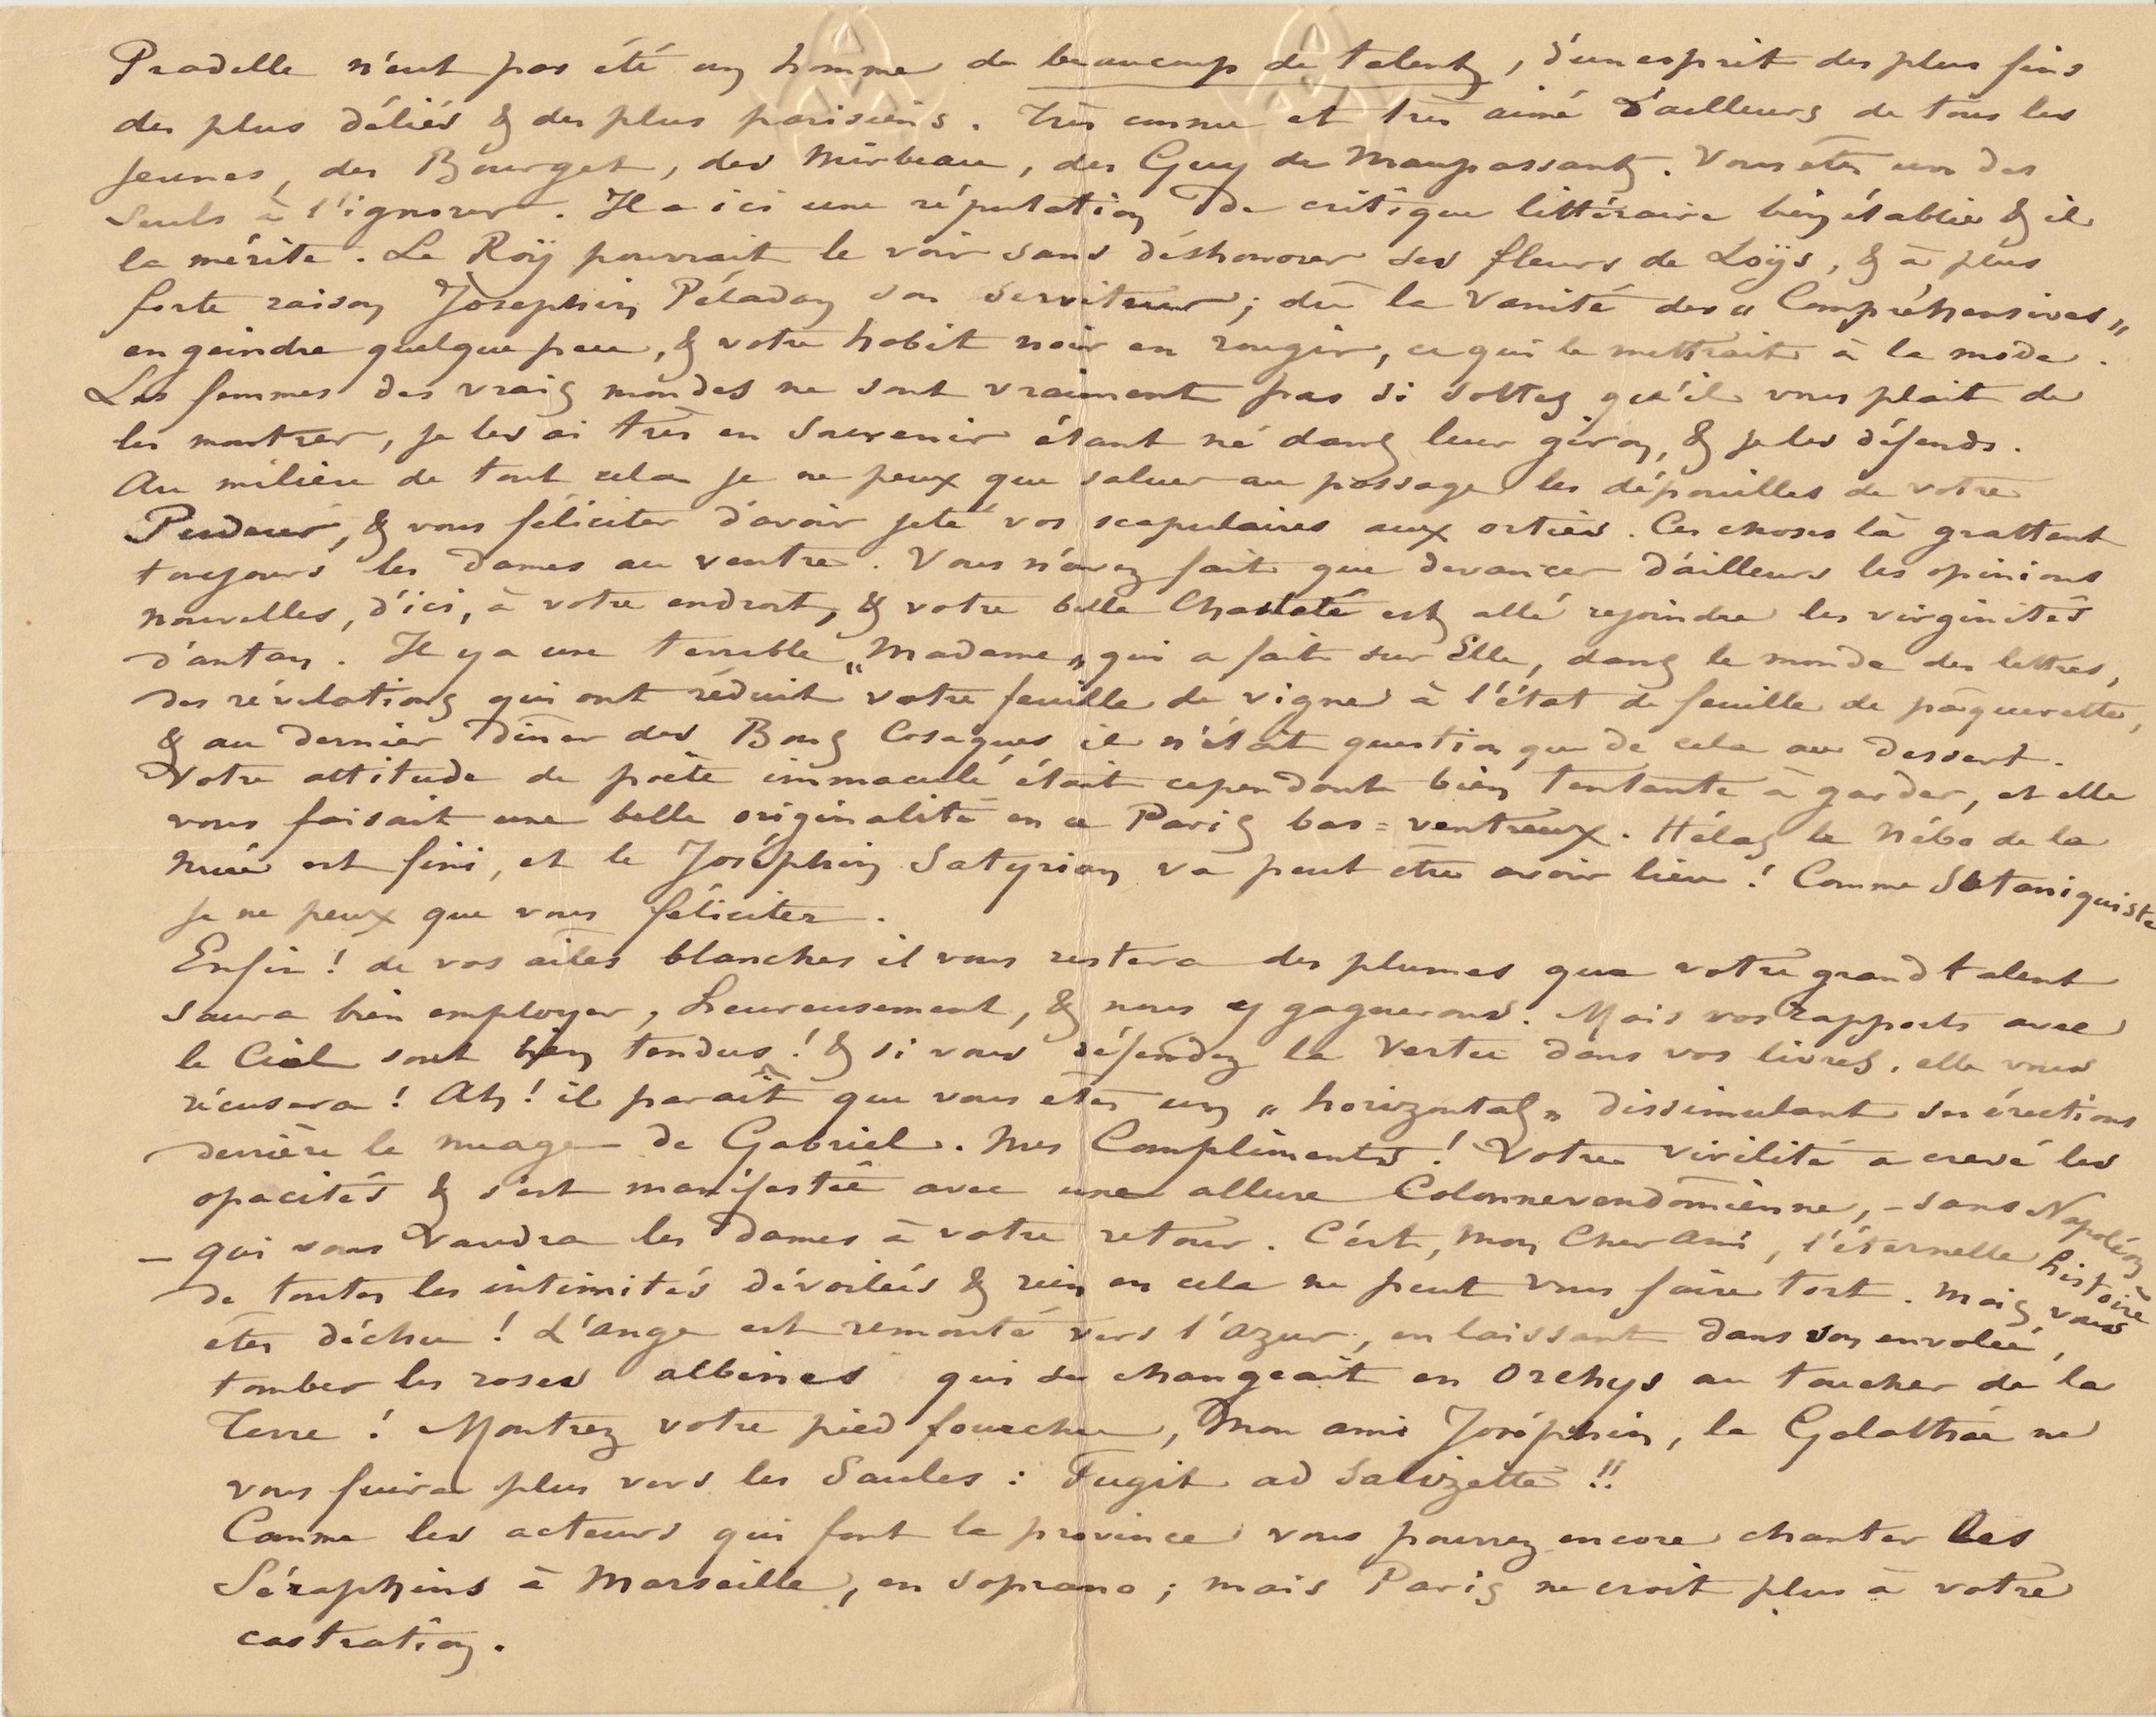 Pradelle n'eut pas été un homme de beaucoup de talent, d'un esprit des plus fins
des plus déliés & des plus parisiens. Très connu et très aimé d'ailleurs de tous les
jeunes, des Bourget, des Mirbeau, des Guy de Maupassant. Vous êtes un des
seuls à l'ignorer. Il a ici une réputation de critique littéraire bien établie & il
la mérite. Le Roÿ pourrait le voir sans déshonorer ses fleurs de Loÿs, & à plus
forte raison Josephin Péladan son serviteur ; dû la vanité des « Compréhensives »
en geindre quelque peu, & votre habit noir en rougir, ce qui le mettrait à la mode.
Les femmes des vrais mondes ne sont vraiment pas si sottes qu'il vous plait de
les montrer, je les ai très en souvenir étant né dans leur giron, & je les défends.
Au milieu de tout cela je ne peux que saluer au passage les dépouilles de votre
Pudeur, & vous féliciter d'avoir jeté vos scapulaires aux orties. Ces choses là grattent
toujours les dames au ventre. Vous n'avez fait que devancer d'ailleurs les opinions
nouvelles, d'ici, à votre endroit, & votre belle Chasteté est allé rejoindre les virginités
d'antan. Il y a une terrible « Madame » qui a fait sur Elle, dans le monde des lettres,
des révélations qui ont réduit votre feuille de vigne à l'état de feuille de pâquerette,
& au dernier diner des Bons Cosaques il n'était question que de cela au dessert.
Votre attitude de poète immaculé était cependant bien tentante à garder, et elle
vous faisait une belle originalité en ce Paris bas=ventreux. Hélas le Nébo de la
nuée est fini, et le Joséphin Satyrion va peut être avoir lieu ! Comme Sataniquiste
je ne peux que vous féliciter.
Enfin ! de vos ailes blanches il vous restera des plumes que votre grand talent
saura bien employer, heureusement, & nous y gagnerons. Mais vos rapports avec
le Ciel sont bien tendus ! & si vous défendez la Vertu dans vos livres, elle vous
récusera ! Ah ! il paraît que vous etes un « horizontal » dissimulant ses érections
derrière le nuage de Gabriel. Mes Compliments ! Votre virilité a crevé les
opacités & s'est manifestée avec une allure Colonnevendômienne, - sans Napoléon
- qui vous vaudra les dames à votre retour. C'est, Mon Cher Ami, l'éternelle histoire
de toutes les intimités dévoilées & rien en cela ne peut vous faire tort. Mais vous
êtes déchu ! L'Ange est remonté vers l'Azur, en laissant dans son envolée,
tomber les roses albines qui se changeait en Orchys au toucher de la
Terre ! Montrez votre pied fourchu, Mon ami Joséphin, la Galathée ne
vous fuira plus vers les Saules : Fugit ad salizette !!
Comme les acteurs qui font la province vous pourrez encore chanter les
Séraphins à Marseille, en soprano ; mais Paris ne croit plus à votre
castration.